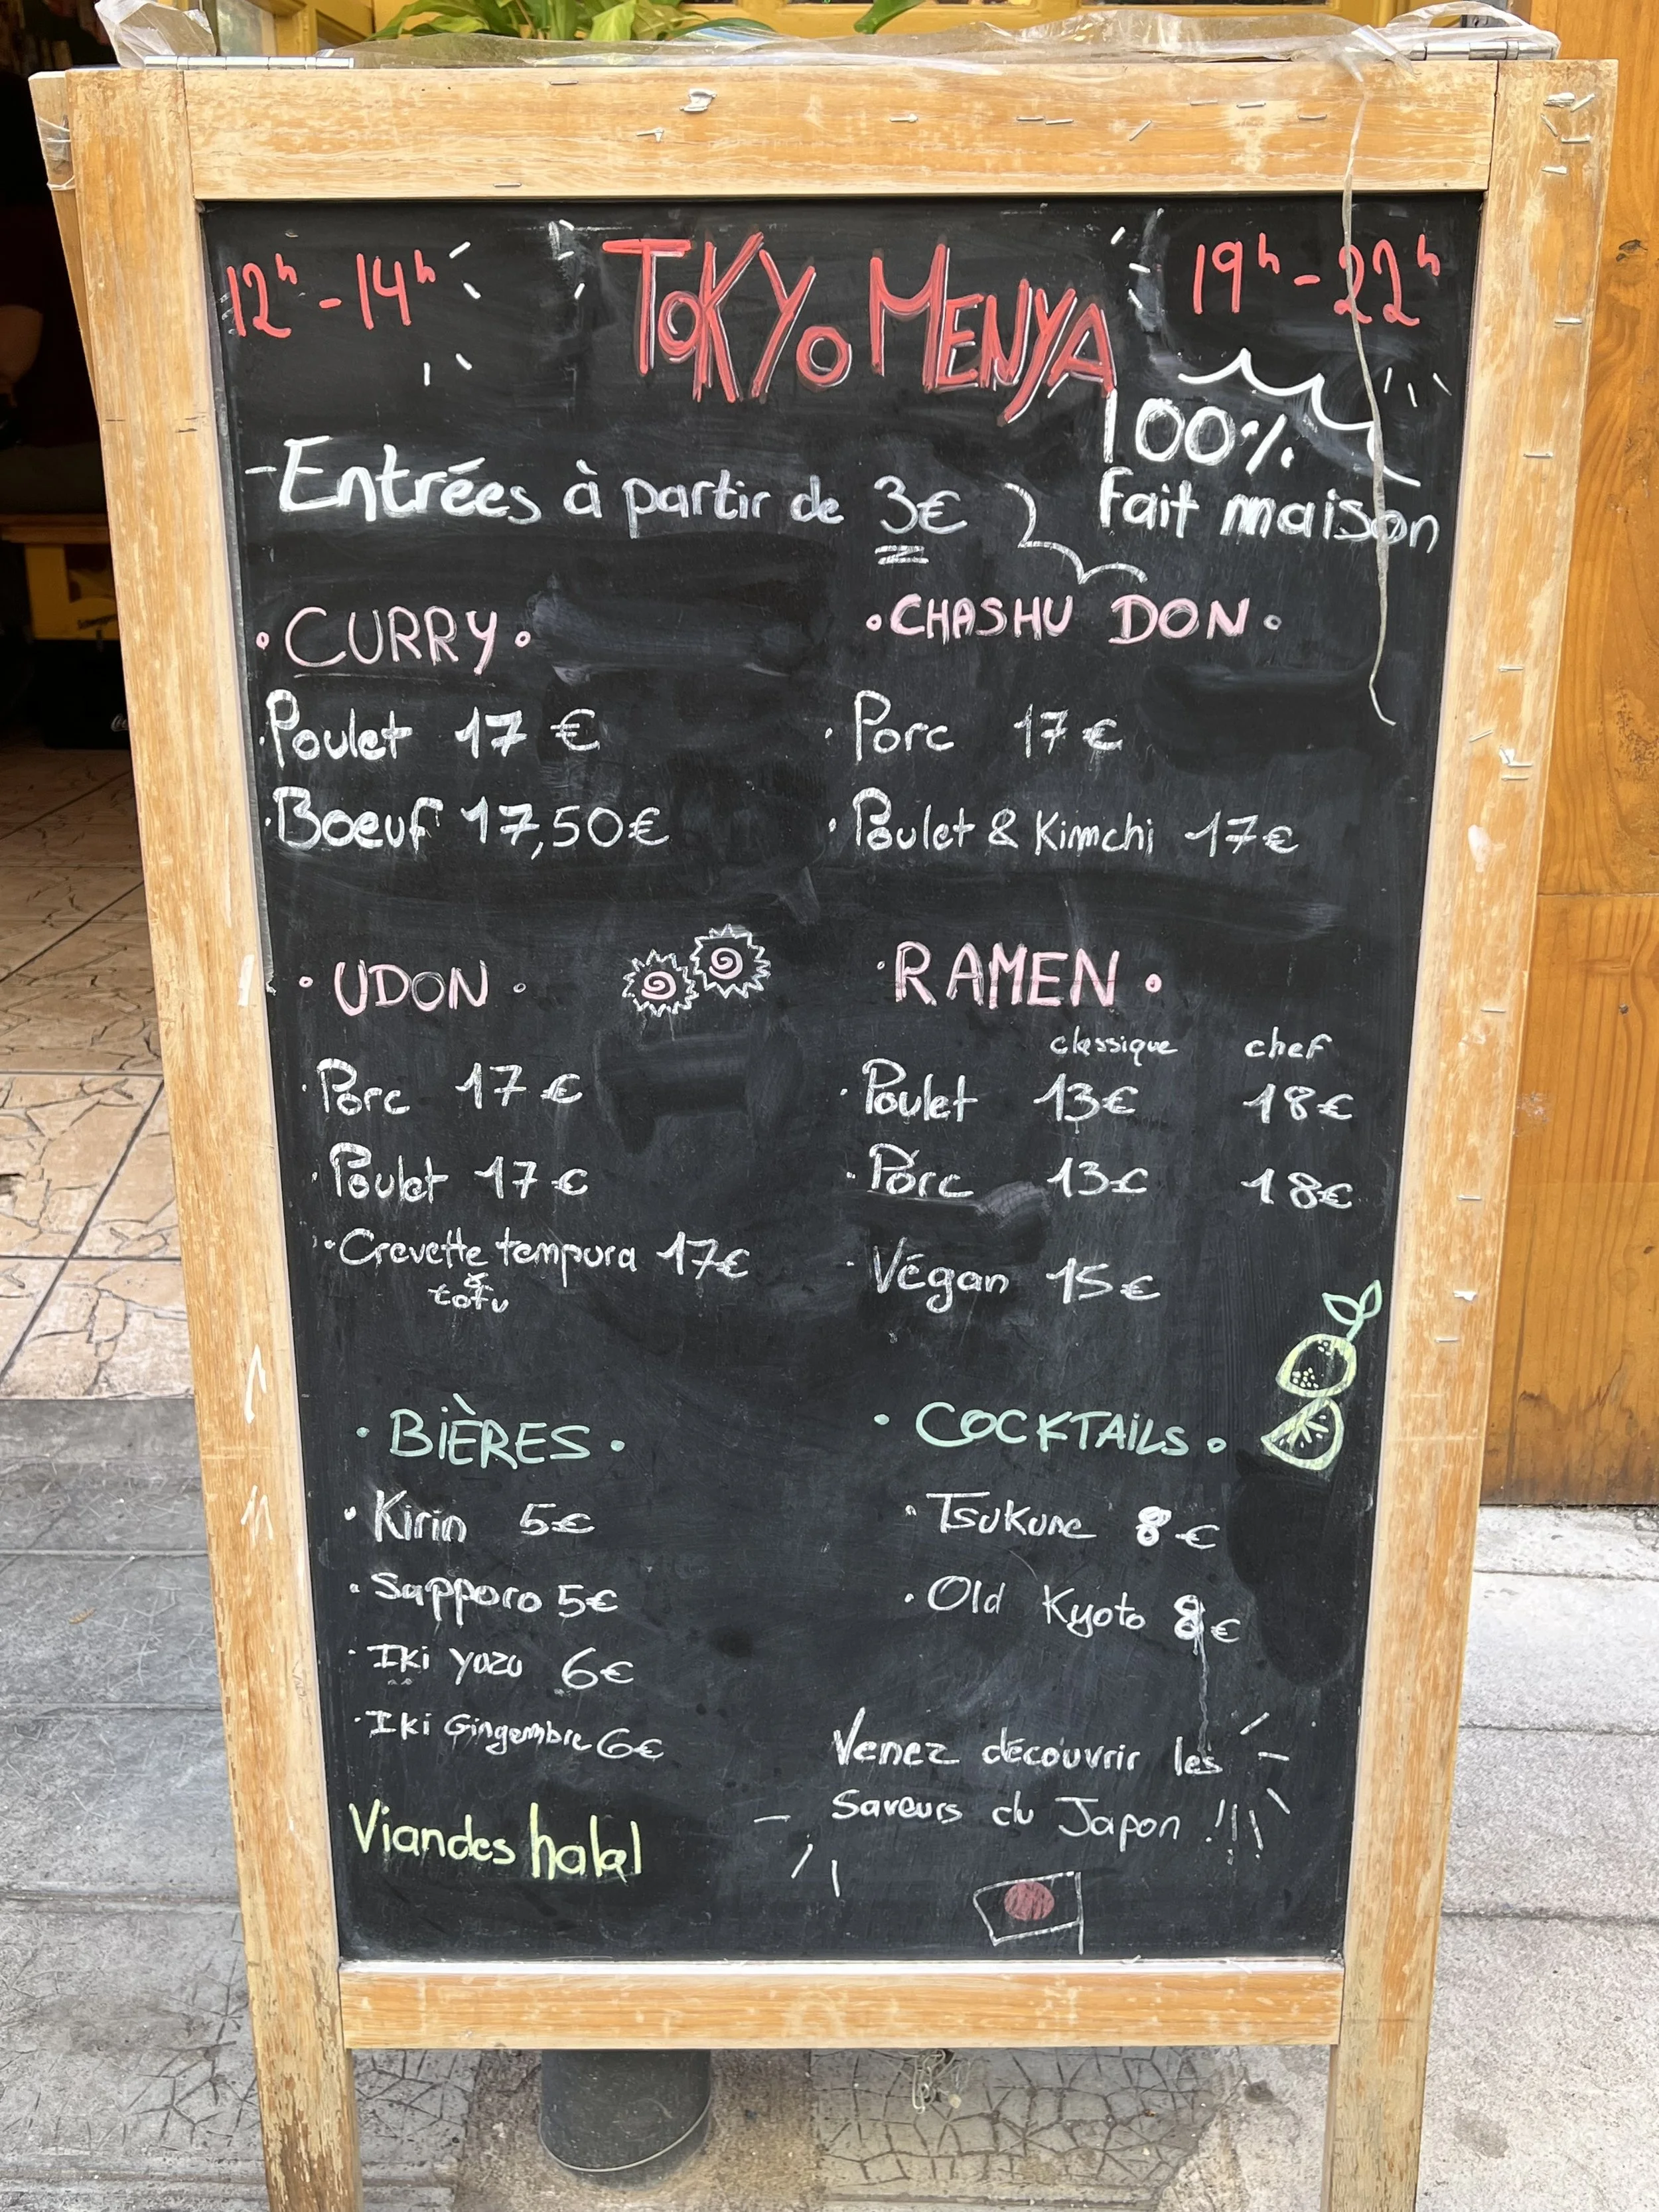 12h - 14h
TOKYO MENYA
19h - 22h
100%
fait maison
- Entrées à partir de 3€
• CURRY •
• Poulet 17 €
• Boeuf 17,50€
• CHASHU DON •
• Porc 17€
• Poulet & Kimchi 17€
• UDON •
• Porc 17€
• Poulet 17€
• Crevette tempura 17€
& tofu
• RAMEN •
classique chef
• Poulet 13€ 18€
• Porc 13€ 18€
• Végan 15€
• BIÈRES •
• Kirin 5€
• Sapporo 5€
• Iki yuzu 6€
• Iki Gingembre 6€
• COCKTAILS •
• Tsukune 8€
• Old Kyoto 8€
Venez découvrir les
Saveurs du Japon !!!
Viandes halal